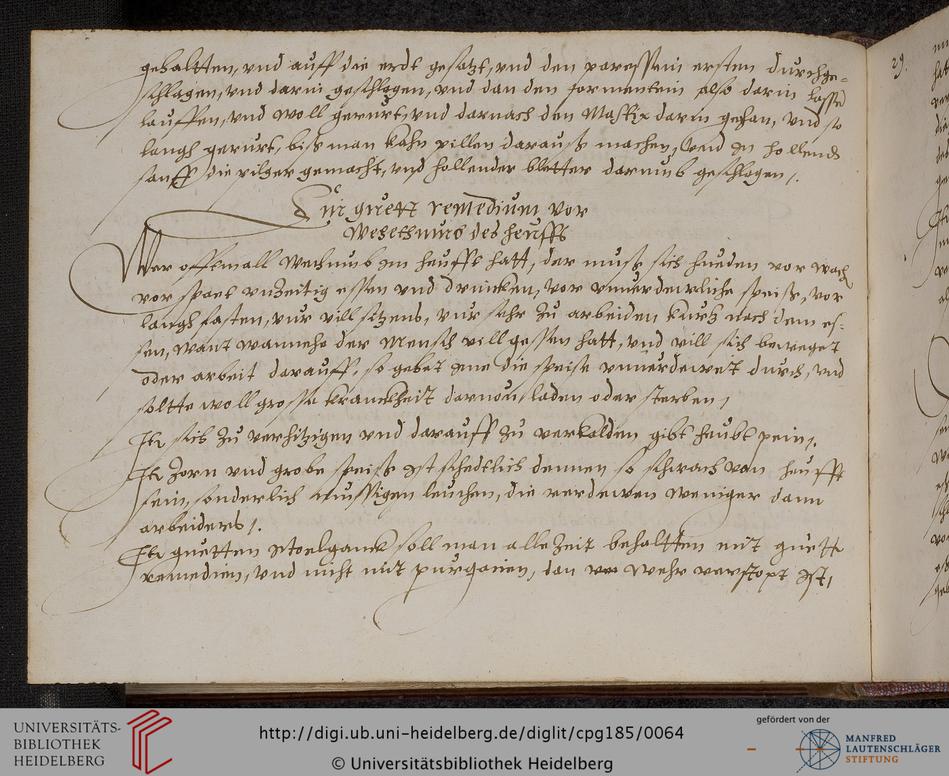 gehaltten, vnd auff die erdt gesatzt, vnd den ersten durchge=
schlagen, vnd darin geschlagen, vnd dan den tormentein also darin lassen
lauffen, vnd woll gerurt, vnd darnach den Mastix darin gethan, vnd so
langh gerurt, biss man kahn pillen darauss machen, vnd in hollends
safft die pilger gemacht, vnd hollender bletter darumb geschlagen /.
Ein guett remedium vor
Wehethumb des heuffts
Wer offtmall Wethumb im heufft hatt, der muss sich hueden vor
vor spaet vnzeitig essen vnd drincken, vor vnuerdewliche speiss, vor
langh fasten, vur vill sitzens, vur sehr zu arbeiden kurtz nach dem es=
sen, want wannehe der Mensch vill gessen hatt, vnd will sich beweget
oder arbeit darauff, so gehet ime die speise vnuerdewet durch, vnd
soltte woll grosse kranckheit daruon laden oder sterben /
Itē sich zu verhitzigen vnd darauff zu verkalden gibt heubt pein /.
Itē Zorn vnd grobe speiss ist schedtlich dennen so schwach von heufft
sein, sonderlich mussigen leuthen, die verdewen weniger dann
arbeiders /.
Itē guetten stoelganck soll man alle Zeit behaltten mit guett
remedien, vnd nicht mit purgacien, dan wehr verstopt ist,
29.
UNIVERSITÄTS-
BIBLIOTHEK
HEIDELBERG
http://digi.ub.uni-heidelberg.de/diglit/cpg185/0064
© Universitätsbibliothek Heidelberg
gefördert von der
MANFRED
LAUTENSCHLÄGER
STIFTUNG